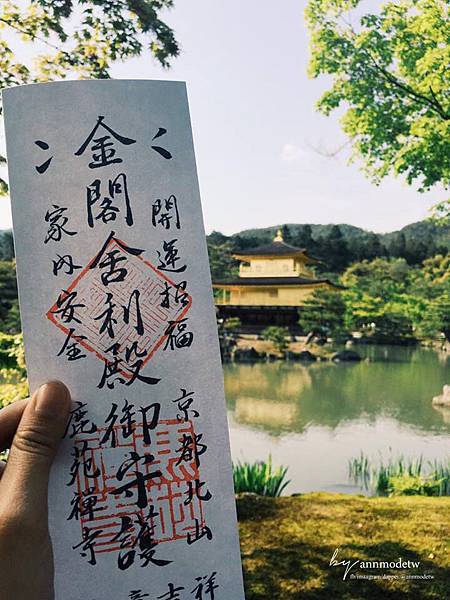 開運招福
京都北山
金閣舍利殿御守護
家內安全
鹿苑禅寺
吉祥
by annmodetw
fb/instagram/dappei @ annmodetw